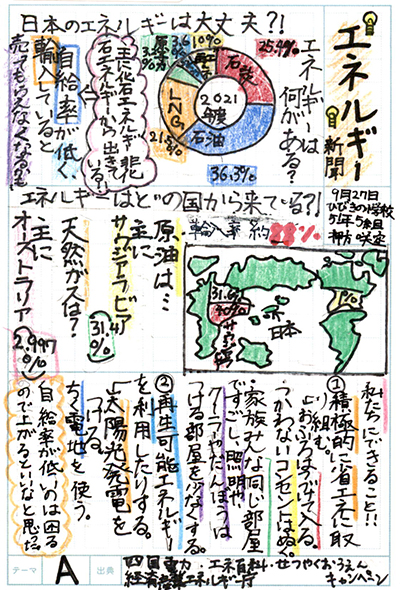 エネルギー
新聞
9月27日
5年5組
日本のエネルギーは大丈夫?!
エネルギーは
何がある?
2021
年度
石炭
25.4%
石油
36.3%
LNG
10%
3.6
主に化石エネルギー
石エネルギーから出来
ている!!
自給率が低く、
輸入していると
売ってもらえなくなるかも
エネルギーはどの国から来ている?!
輸入率 約88%
日本
原油は…
主に
サウジアラビア
天然ガスは?
主に
オーストラリア
私たちにできること!!
①積極的に省エネに取
り組む。
おふろはつづけて入る。
つかわないコンセントはぬく。
・家族みんな同じ部屋
ですごし、照明や
クーラーやだんぼうを
つける部屋を少なくする。
②再生可能エネルギー
を利用したりする。
太陽光発電を
つける。
電池を使う。
自給率が低いのは困る
ので上がるといいなと思った。
テーマ
A
出典
四国電力・エネ百科・せつやくおうえん
キャンペーン
エネルギー庁